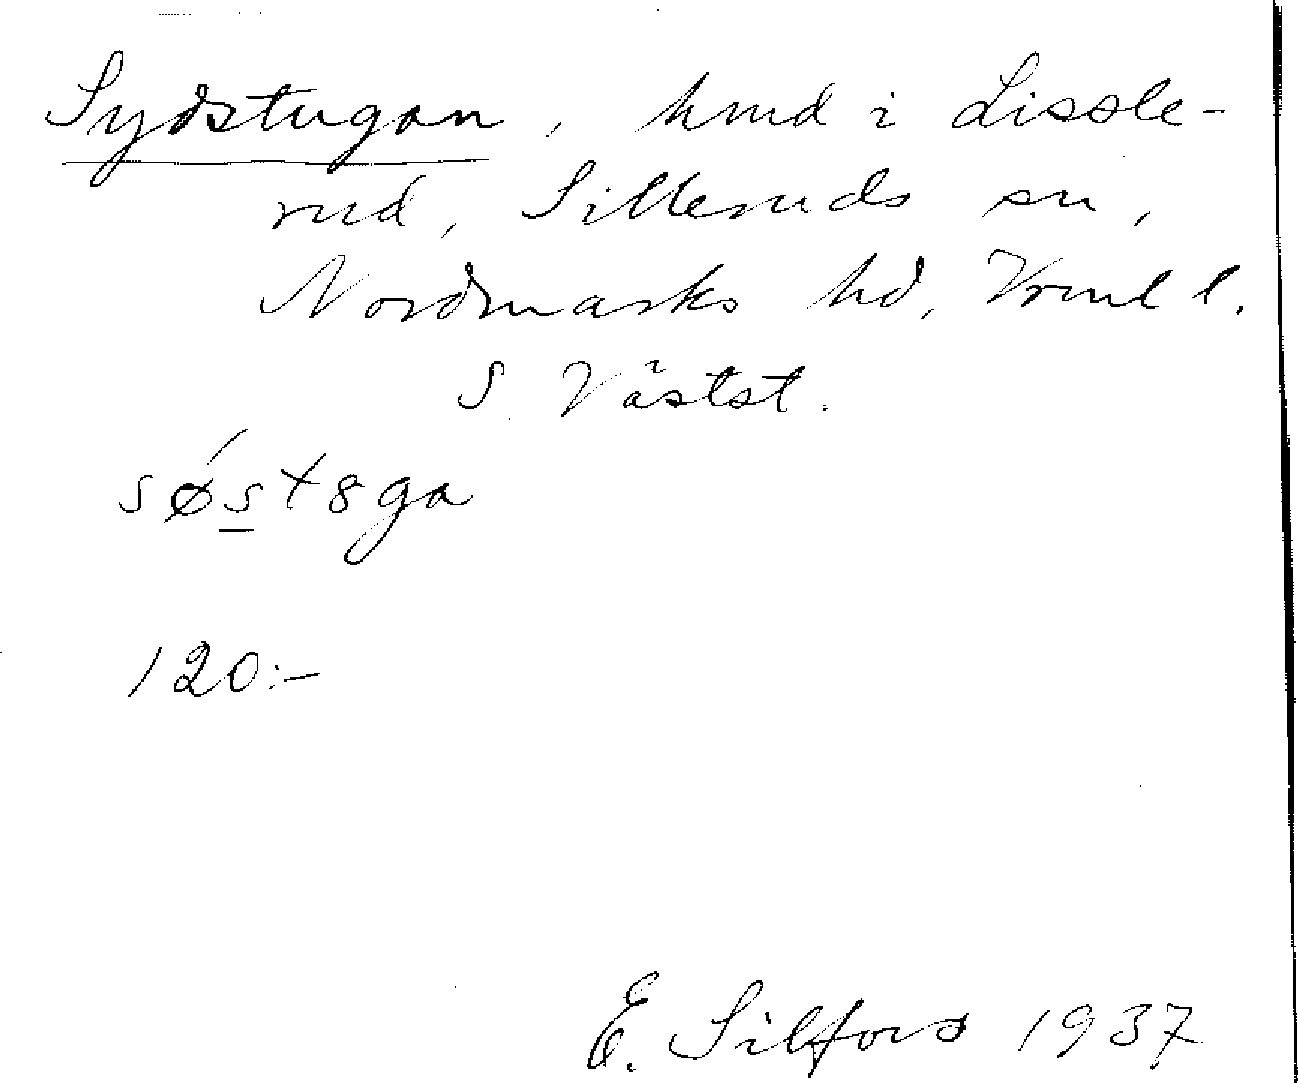 Sydstugan, hmd i Lissle-
rud, Silleruds sn,
Nordmarks hd, Vrml l.
S. Västst.
søstsga
120:-
E. Silfors 1937